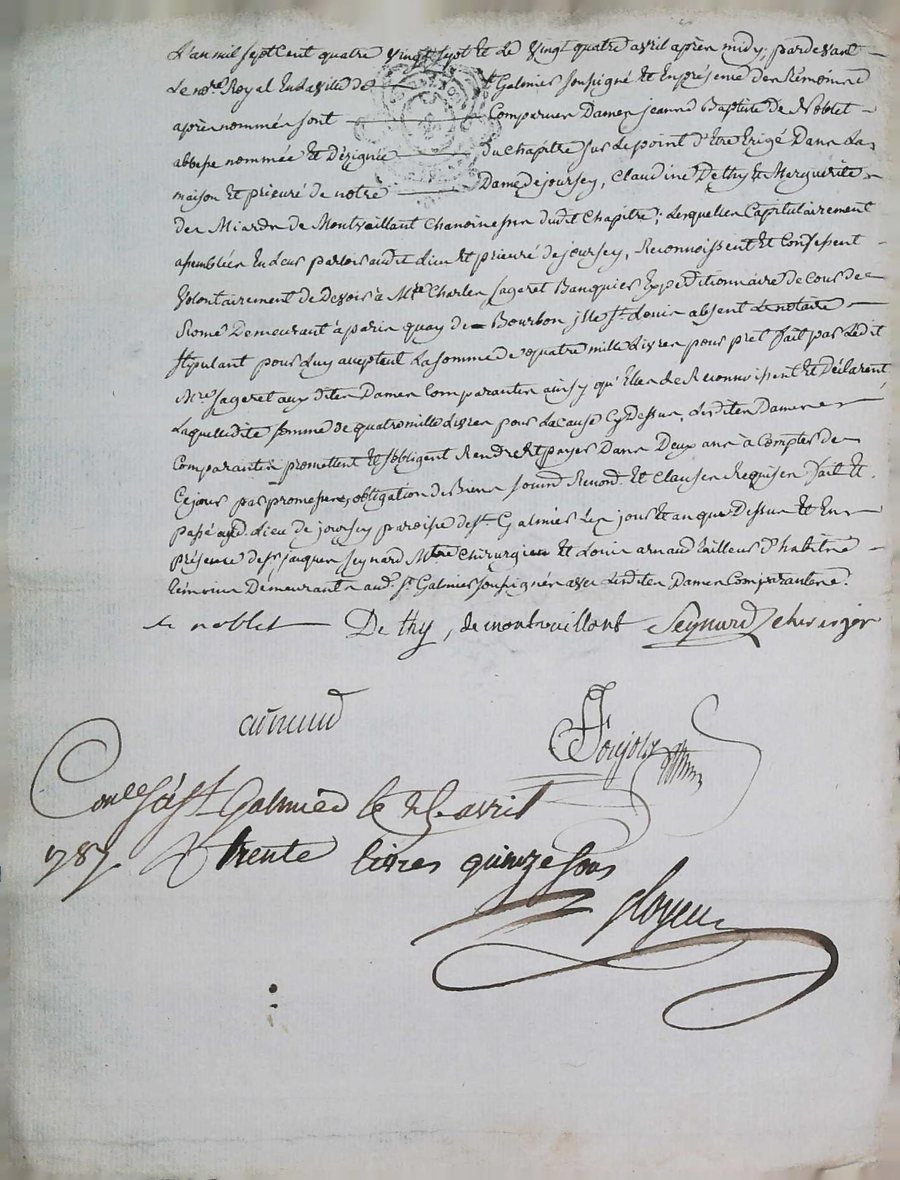 L'an mil sept Cent quatre vingt sept Et Le vingt quatre avril après midy, pardevant
Le nore. Royal En la ville de St Galmier soussigné Et En présence des témoins
après nommés sont Comparues Dames jeanne Baptiste De Noblet
abbesse nommée Et désignée du chapitre sur Le point d'Etre Erigé Dans La
maison Et prieuré de notre Dame de joursey, Claudine De thy Et Marguerite
des Miards de Montvaillant Chanoinesses dudit Chapitre; Lesquelles Capitulairement
assemblées En Leur parloir audit Lieu Et prieuré de joursey, Reconnoissent Et Confessent
volontairement de devoir à Mre Charles sageret Banquier Expeditionnaire de Cour de
Rome Demeurant à paris quay de Bourbon isle st. Louis absent Le notaire
stipulant pour Luy acceptant La somme de quatre mille Livres pour prêt fait par Ledit
Mre. sageret aux dites Dames Comparantes ainsy qu'Elles Le Reconnoissent Et Déclarent,
Laquelle dite somme de quatre mille Livres pour La cause Cy Dessus, Lesdites Dames
Comparantes promettent Et s'obligent Rendre Et payer Dans Deux ans à Compter de
Ce jour par promesses, obligation de Biens Et Clauses Requises fait Et
passé aud. Lieu de joursey paroisse de st. Galmier Les jour Et an que Dessus Et En
présence de sr. jacques seynard Mtre Chirurgien Et Louis arnaud tailleur d'habits
témoins Demeurants aud. st. Galmier soussignés avec Lesdites Dames Comparantes.
de noblet De thy, de montvaillant Seynard chirurgien
arnaud
Conlé à st Galmier le avril
1787 trente livres quinze sous